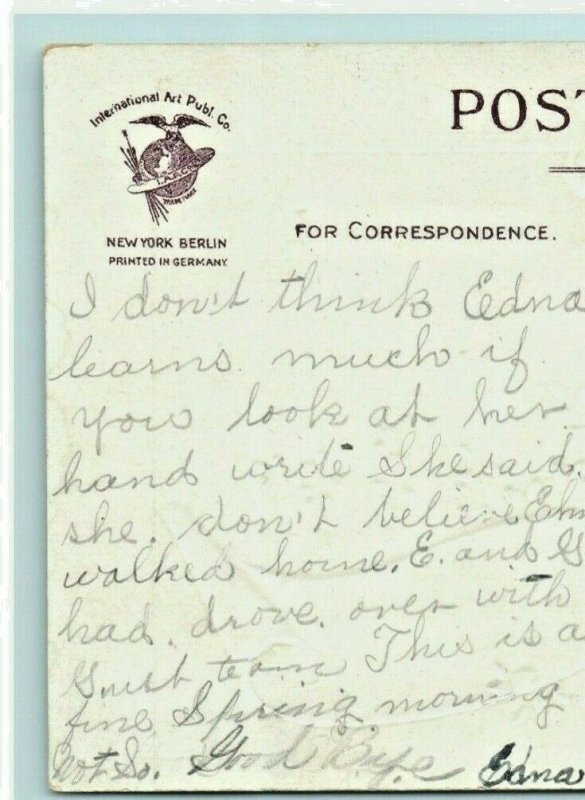 International Art Publ. Co.
I.A.P.Co.
TRADE MARK
NEW YORK BERLIN
PRINTED IN GERMANY.
POST
FOR CORRESPONDENCE.
I don't think Edna
learns. much if
you look at her
hand write She said.
she. don't believe
walked home. E. and G
had. drove. over with
team This is a
fine Spring morning
Not So. Good Bye Edna